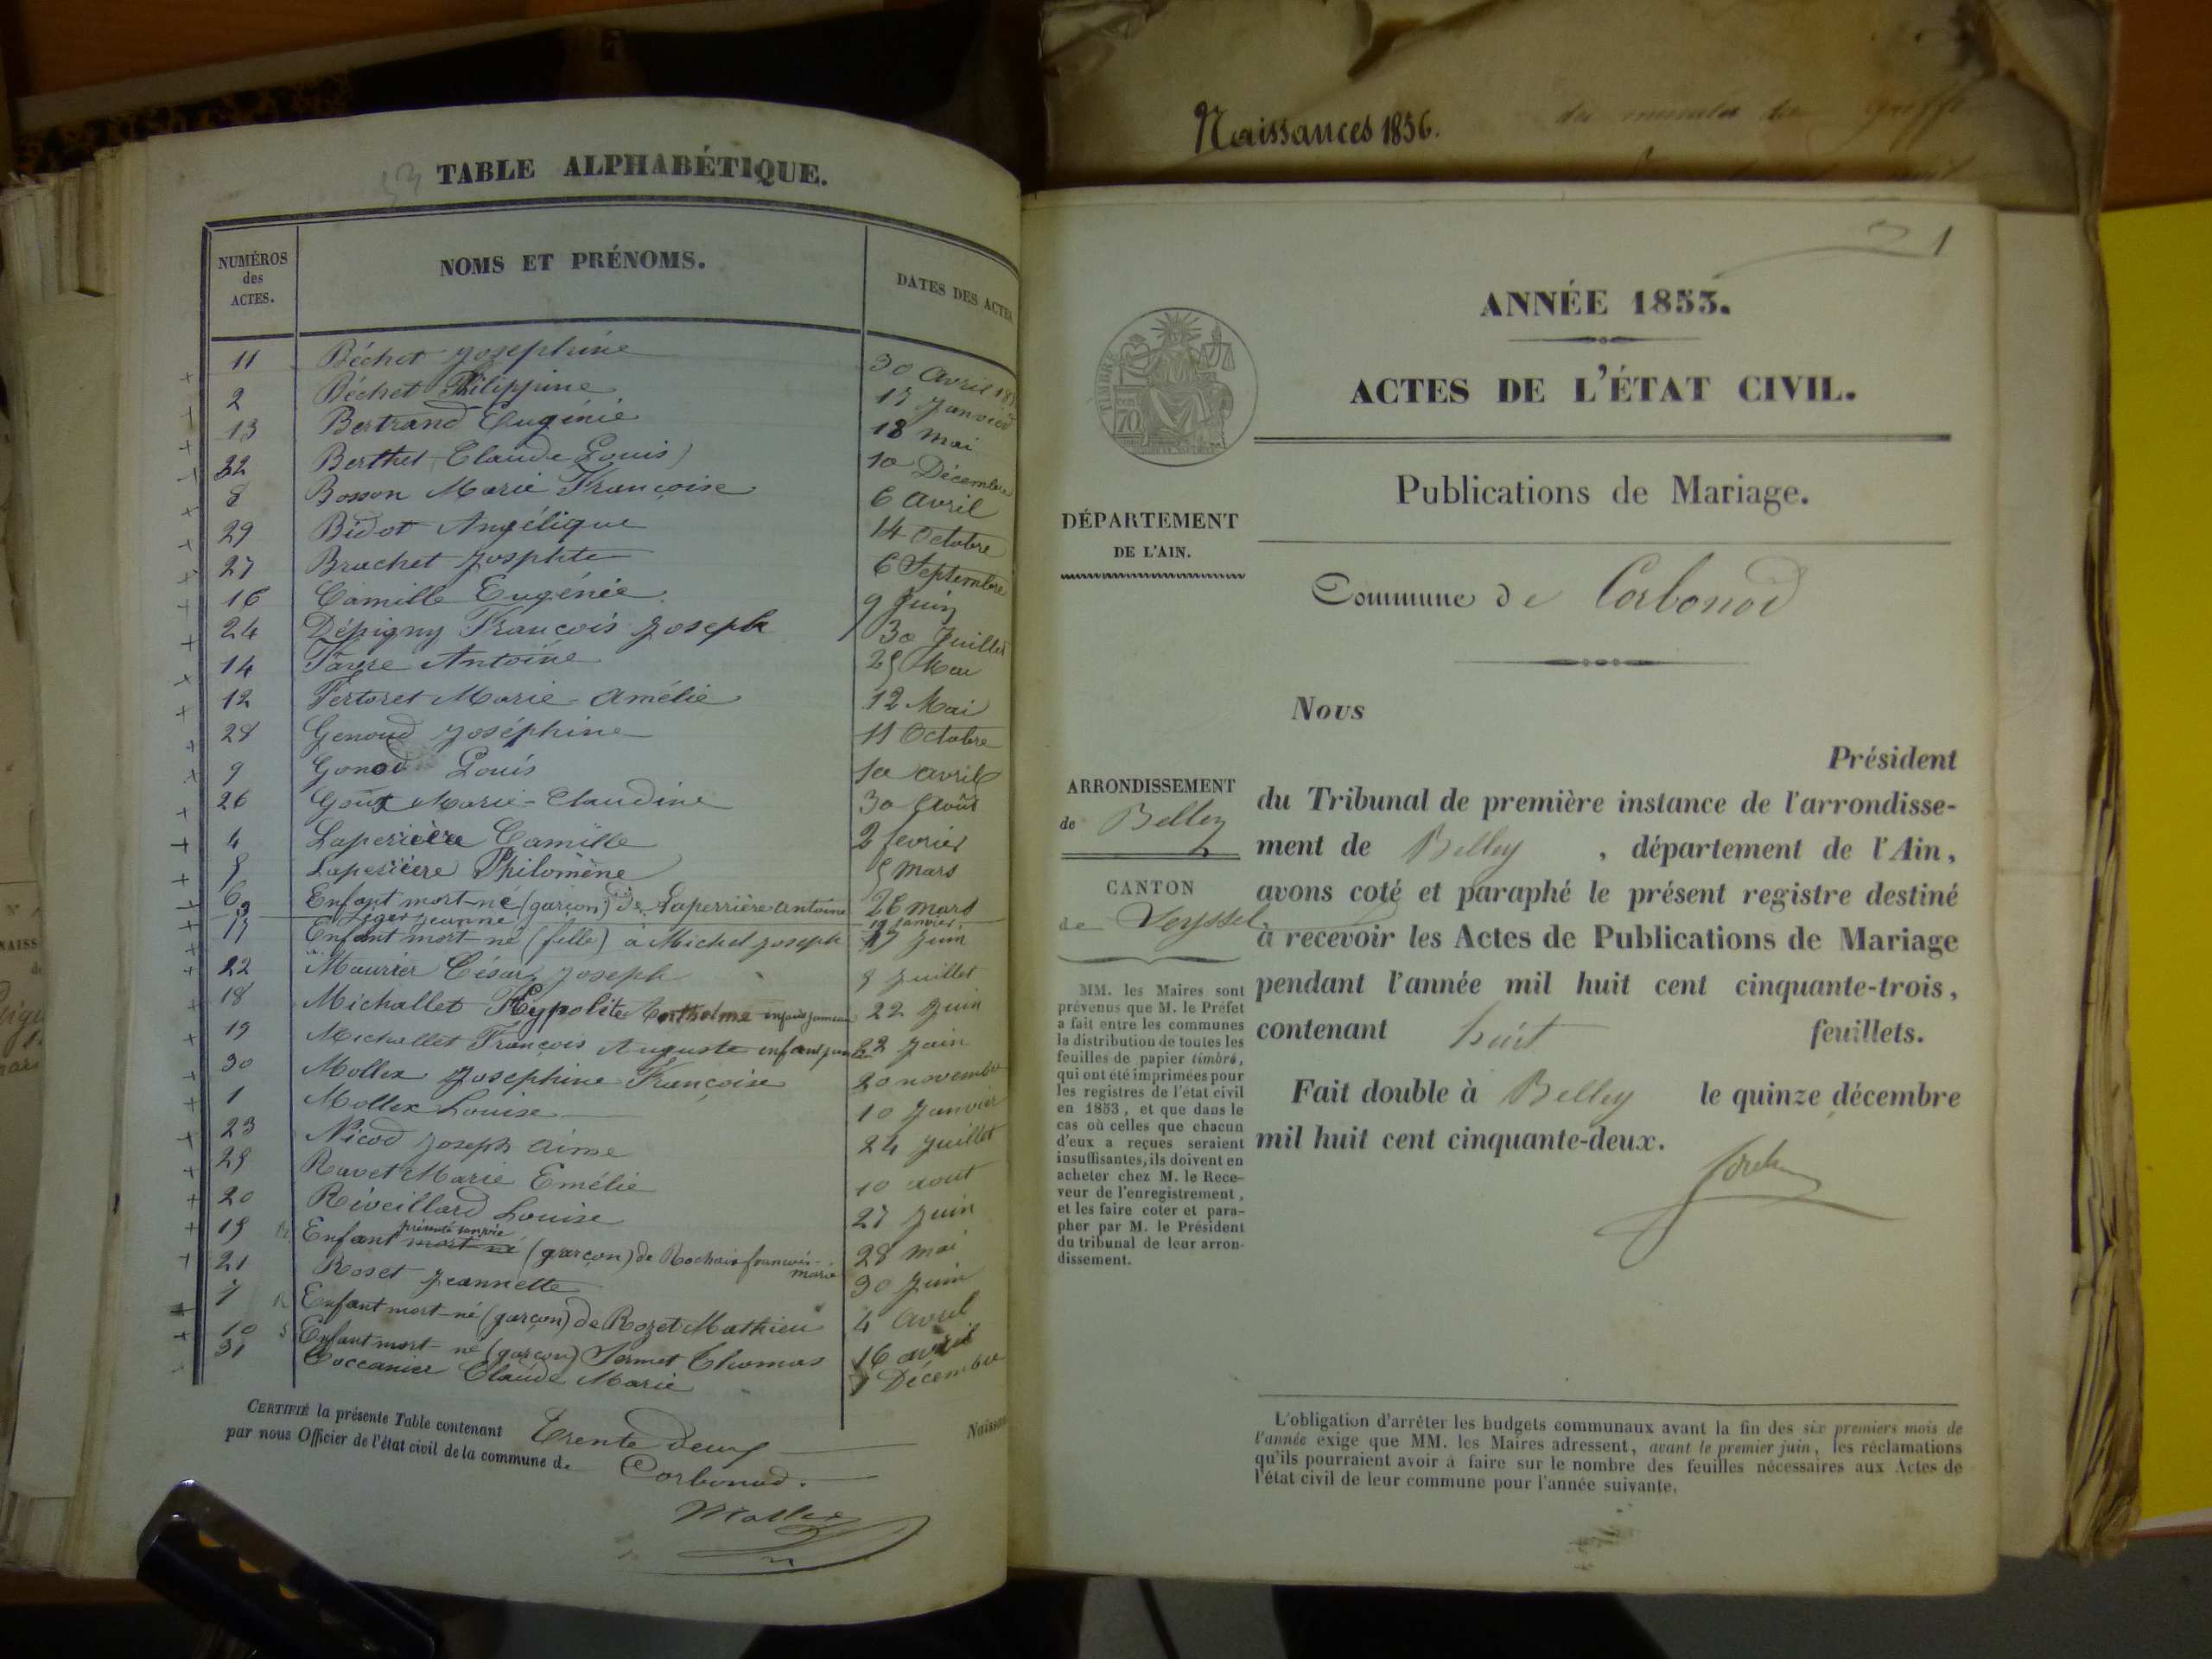 Naissances 1856.
TABLE ALPHABÉTIQUE.
NUMÉROS des ACTES.
NOMS ET PRÉNOMS.
DATES DES ACTES
11 Béchet Josephine 30 avril
2 Béchet Philippine 17 Janvier
13 Bertrand Eugénie 18 mai
32 Berthet Claude Louis 10 Décembre
8 Bosson Marie Françoise 6 avril
29 Bidot Angélique 14 Octobre
27 Brachet Josephte 6 Septembre
16 Camille Eugénie 9 Juin
24 Dépigny François Joseph 30 Juillet
14 Favre Antoine 25 Mai
12 Fertoret Marie-Amélie 12 Mai
28 Genoud Joséphine 11 Octobre
9 Gonod Louis 10 avril
26 Goux Marie-Claudine 30 Août
4 Laperière Camille 2 fevrier
5 Laperière Philomène 5 mars
6 Enfant mort-né (garçon) de Laperrière Antoine 26 mars
3 Leger Jeanne 19 janvier
17 Enfant mort-né (fille) à Michel Joseph 17 Juin
22 Maurier César Joseph 8 Juillet
18 Michallet Hypolite Anthelme enfant jumeau 22 Juin
19 Michallet François Auguste enfant jumeau 22 Juin
30 Mollex Josephine Françoise 20 novembre
1 Mollex Louise 10 Janvier
23 Nicod Joseph aimé 24 Juillet
25 Ravet Marie Emélie 10 aout
20 Réveillard Louise 27 Juin
présenté sans vie
15 Enfant mort-né (garçon) de Rochaix françois-marie 28 mai
21 Roset Jeannette 30 Juin
7 Enfant mort-né (garçon) de Rozet Mathieu 4 avril
10 Enfant mort-né (garçon) Sermet Thomas 16 avril
31 Coccanier Claude Marie 7 Décembre
CERTIFIÉ la présente Table contenant Trente deux Naissan
par nous Officier de l'état civil de la commune de Corbonod.
1
ANNÉE 1853.
ACTES DE L'ÉTAT CIVIL.
Publications de Mariage.
TIMBRE
70
DÉPARTEMENT
DE L'AIN.
Commune de Corbonod
Nous
Président
du Tribunal de première instance de l'arrondisse-
ment de Belley, département de l'Ain,
avons coté et paraphé le présent registre destiné
à recevoir les Actes de Publications de Mariage
pendant l'année mil huit cent cinquante-trois,
contenant huit feuillets.
Fait double à Belley le quinze décembre
mil huit cent cinquante-deux.
ARRONDISSEMENT
de Belley
CANTON
de Seyssel
MM. les Maires sont
prévenus que M. le Préfet
a fait entre les communes
la distribution de toutes les
feuilles de papier timbré,
qui ont été imprimées pour
les registres de l'état civil
en 1853, et que dans le
cas où celles que chacun
d'eux a reçues seraient
insuffisantes, ils doivent en
acheter chez M. le Rece-
veur de l'enregistrement,
et les faire coter et para-
pher par M. le Président
du tribunal de leur arron-
dissement.
L'obligation d'arrêter les budgets communaux avant la fin des six premiers mois de
l'année exige que MM. les Maires adressent, avant le premier juin, les réclamations
qu'ils pourraient avoir à faire sur le nombre des feuilles nécessaires aux Actes de
l'état civil de leur commune pour l'année suivante.